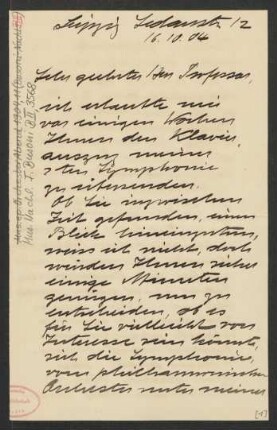 Leipzig Sedanstr. 12
16.10.04
Sehr geehrter Herr Professor,
ich erlaubte mir
vor einigen Wochen
Ihnen den Klavier-
auszug meiner
sten Symphonie
zu übersenden.
Ob Sie inzwischen
Zeit gefunden, einen
Blick hineinzuthun,
weiss ich nicht, doch
würden Ihnen sicher
einige Minuten
genügen, um zu
entscheiden, ob es
für Sie vielleicht von
Interesse sein könnte,
sich die Symphonie,
vom philharmonischen
Orchester unter meiner
Mus. Nachl. F. Busoni B II, 3568
[1]